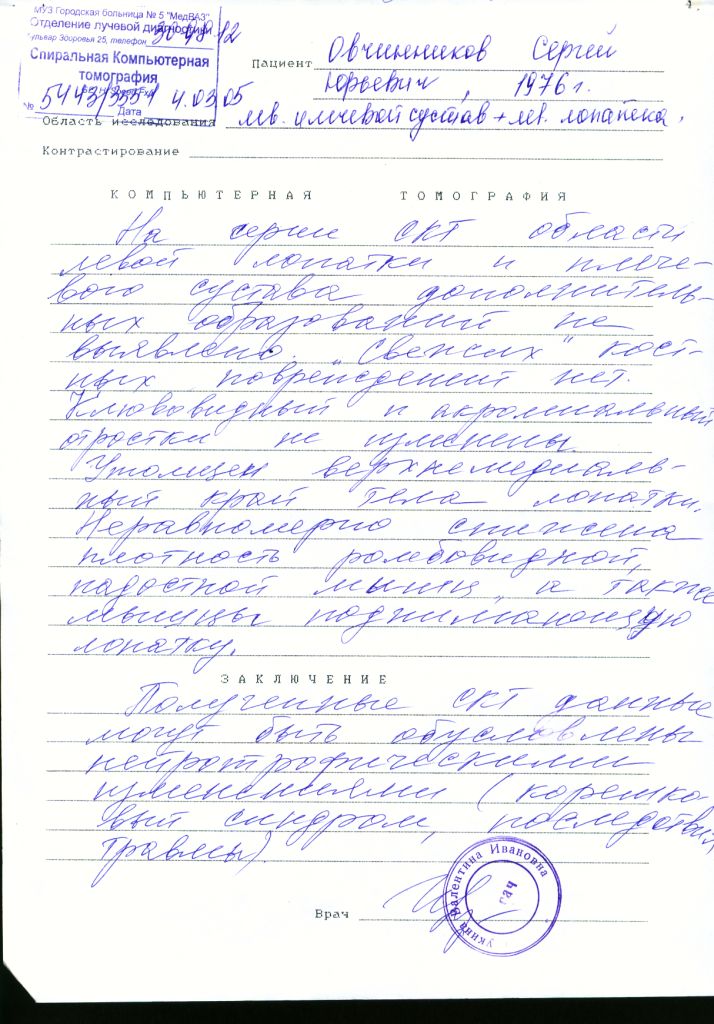 МУЗ Городская больница № 5 "МедВАЗ"
Отделение лучевой диагностики
бульвар Здоровья 25, телефон 30 98 12
Спиральная Компьютерная
томография
№ 5443/3551 4.03.05
Дата
Пациент Овчинников Сергей
Юрьевич, 1976 г.
Область исследования лев. плечевой сустав + лев. лопатка.
Контрастирование
КОМПЬЮТЕРНАЯ ТОМОГРАФИЯ
На серии СКТ области
левой лопатки и плече-
вого сустава дополнитель-
ных образований не
выявлено. „Свежих" кост-
ных повреждений нет.
Клювовидный и акромиальный
отростки не изменены.
Утолщен верхнемедиаль-
ный край тела лопатки.
Неравномерно снижена
плотность ромбовидной,
надостной мышц, а также
мышцы поднимающую
лопатку.
ЗАКЛЮЧЕНИЕ
Полученные СКТ данные
могут быть обусловлены
нейротрофическими
изменениями (корешко-
вый синдром, последствия
травмы).
Врач
Валентина Ивановна
врач